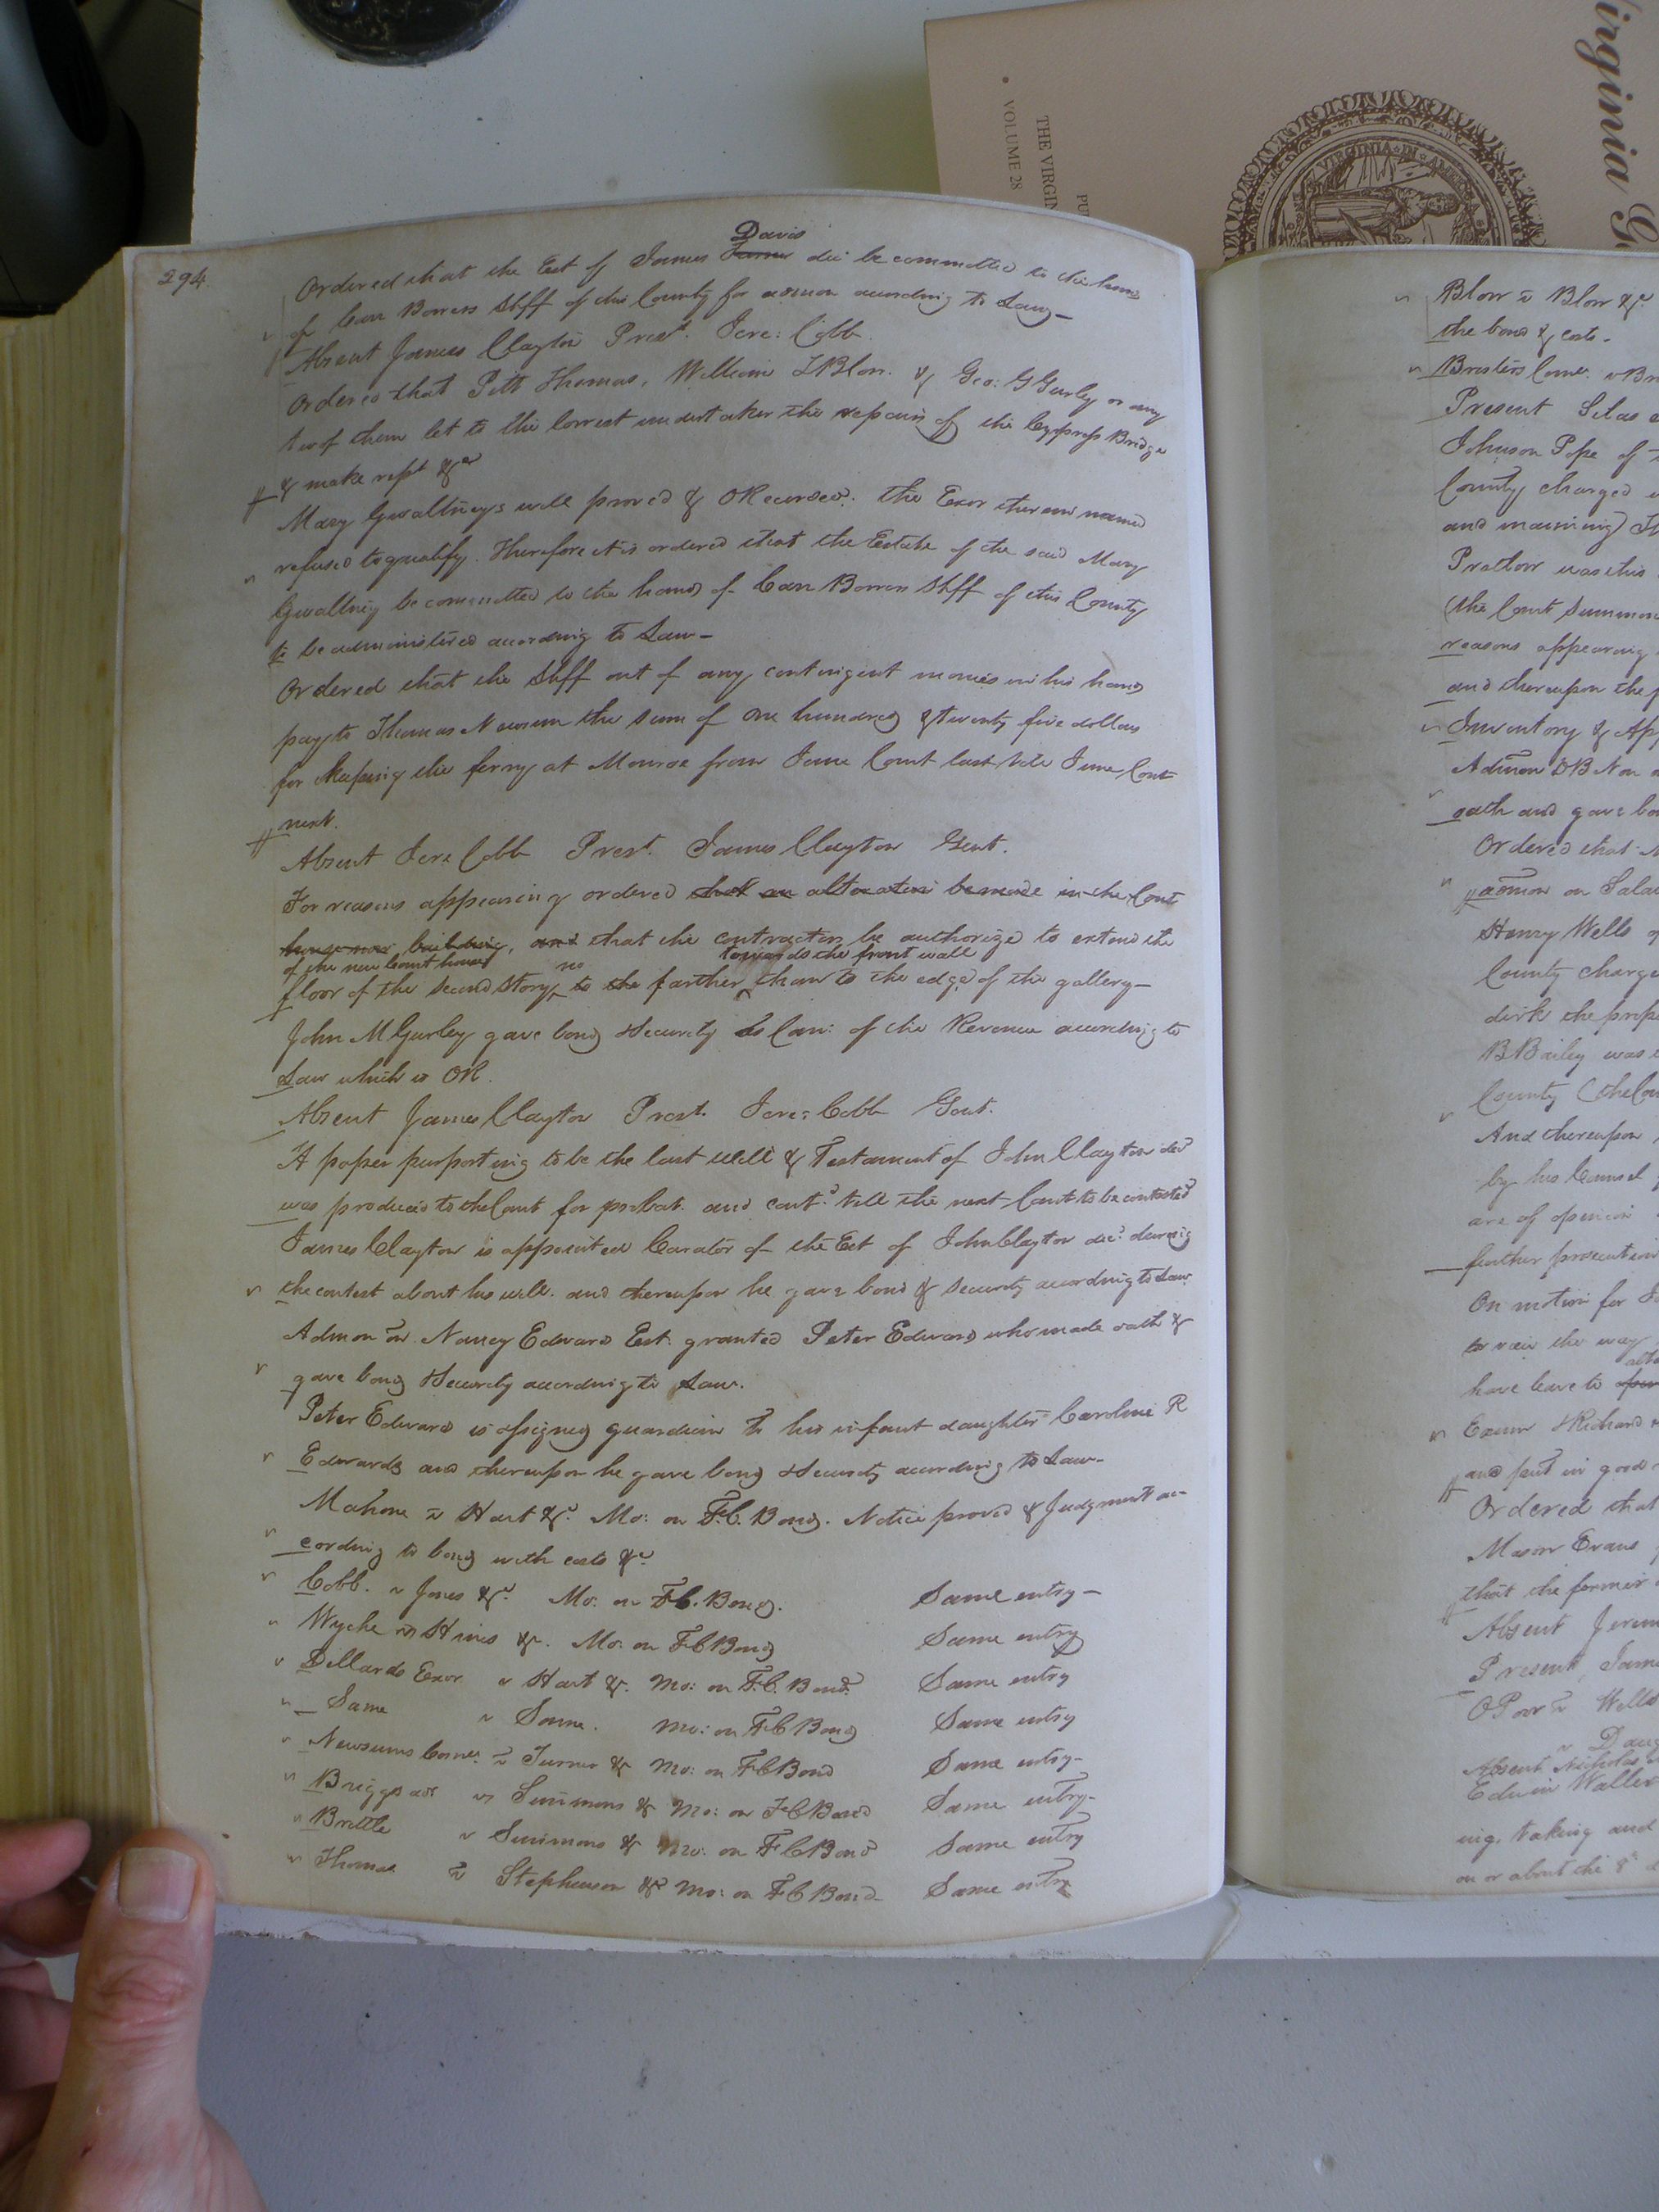 Virginia G
PU
THE VIRGIN
• VOLUME 28
VIRGINIA IN AME
294
Davis
Ordered that the Est of James Turner dec be committed to the hands
of Carr Bowers Shff of this County for admon according to Law—
Absent James Clayton Prest. Jere: Cobb.
Ordered that Pitt Thomas, William Blow. & Geo: G Gurley or any
two of them let to the lowest undertaker the repairs of the Cypress Bridge
& make rept &c
Mary Gwaltneys will proved & OR ecorded. the Exor therein named
refused to qualify. Therefore it is ordered that the Estate of the said Mary
Gwaltney be committed to the hands of Carr Bowers Shff of this County
to be administered according to Law—
Ordered that the Shff out of any contingent monies in his hands
pay to Thomas Newsum the sum of one hundred & twenty five dollars
for keeping the ferry at Monroe from June Court last till June Court
next.
Absent Jere Cobb Prest. James Clayton Gent.
For reasons appearing ordered that an alteration be made in the Court
house now building, and that the contractors be authorize to extend the
of the new Court house no towards the front wall
floor of the second story to the farther than to the edge of the gallery—
John M Gurley gave bond & Security as Com: of the Revenue according to
Law which is OR.
Absent James Clayton Prest. Jere: Cobb Gent.
A paper purporting to be the last will & Testament of John Clayton decd
was produced to the Court for probat. and contd. till the next Court to be contested
James Clayton is appointed Curator of the Est of John Clayton decd. during
the contest about his will. and thereupon he gave bond & security according to Law
Admon on Nancy Edwards Est. granted Peter Edwards who made oath &
gave bond & Security according to Law.
Peter Edwards is assigned guardian to his infant daughter Caroline R
Edwards and thereupon he gave bond & Security according to Law—
Mahone v Hart &c. Mo: on F.C. Bond. Notice proved & Judgment ac-
cording to bond with costs &c
Cobb. v Jones &c. Mo: on F.C. Bond. Same entry—
Wyche vs Hines &c. Mo: on FC Bond Same entry
Dillards Exor v Hart &. Mo: on F.C. Bond. Same entry
Same v Same. Mo: on FC Bond Same entry
Newsums v Turner & Mo: on FC Bond Same entry—
Briggs vs Simmons & Mo: on FC Bond Same entry—
Brittle v Simmons & Mo: on FC Bond Same entry
Thomas v Stephenson & Mo: on FC Bond Same entry
Blow v Blow &c.
the bond & costs—
Present Silas
Johnson Pope of
County charged
and maiming)
was this
(the Court summon
reasons appearing
and thereupon the
Inventory & App
Admon DB Non
oath and gave bo
Ordered that
admon on
Henry Wells
County charge
dirk the prop
B Bailey was
County (the Cou
And thereupon
by his Counsel
are of opinion
further prosecution
On motion for
to view the way
have leave to
Exum & Richard
and put in good
Ordered that
Mason Evans
that the former
Absent Jerem
Present Jame
Wells
Absent Nicholas
Edwin Waller
ing, taking and
on or about the 8th